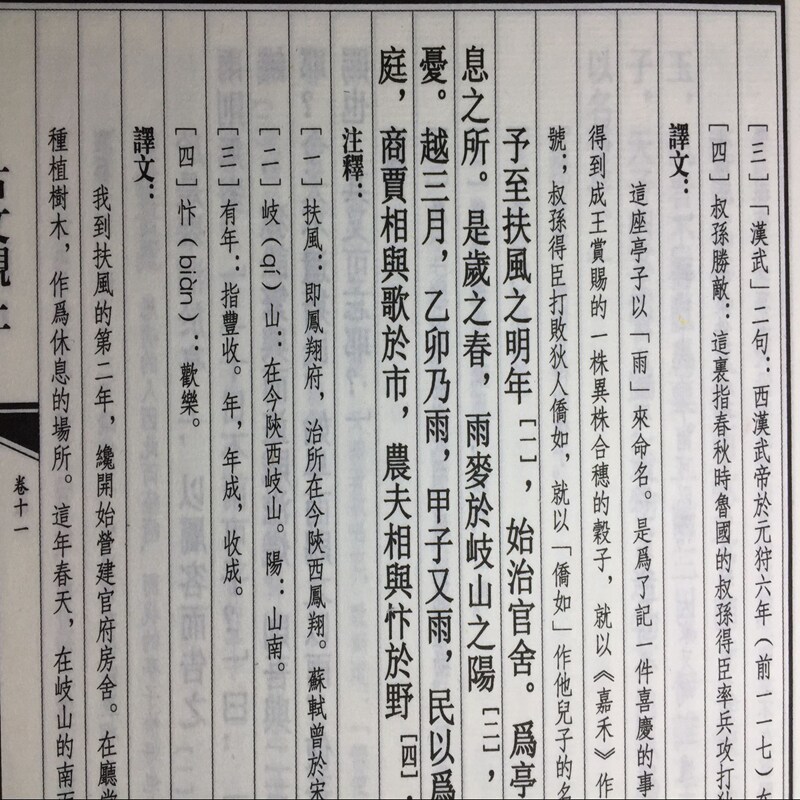 ［三］「漢武」二句：西漢武帝於元狩六年（前一一七）在
［四］叔孫勝敵：這裏指春秋時魯國的叔孫得臣率兵攻打狄
譯文：
這座亭子以「雨」來命名。是爲了記一件喜慶的事
得到成王賞賜的一株異株合穗的穀子，就以《嘉禾》作
號；叔孫得臣打敗狄人僑如，就以「僑如」作他兒子的名
予至扶風之明年［一］，始治官舍。爲亭
息之所。是歲之春，雨麥於岐山之陽［二］，
憂。越三月，乙卯乃雨，甲子又雨，民以爲
庭，商賈相與歌於市，農夫相與忭於野［四］，
注釋：
［一］扶風：即鳳翔府，治所在今陝西鳳翔。蘇軾曾於宋
［二］岐（qí）山：在今陝西岐山。陽：山南。
［三］有年：指豐收。年，年成，收成。
［四］忭（biàn）：歡樂。
譯文：
我到扶風的第二年，纔開始營建官府房舍。在廳堂
種植樹木，作爲休息的場所。這年春天，在岐山的南面
卷十一